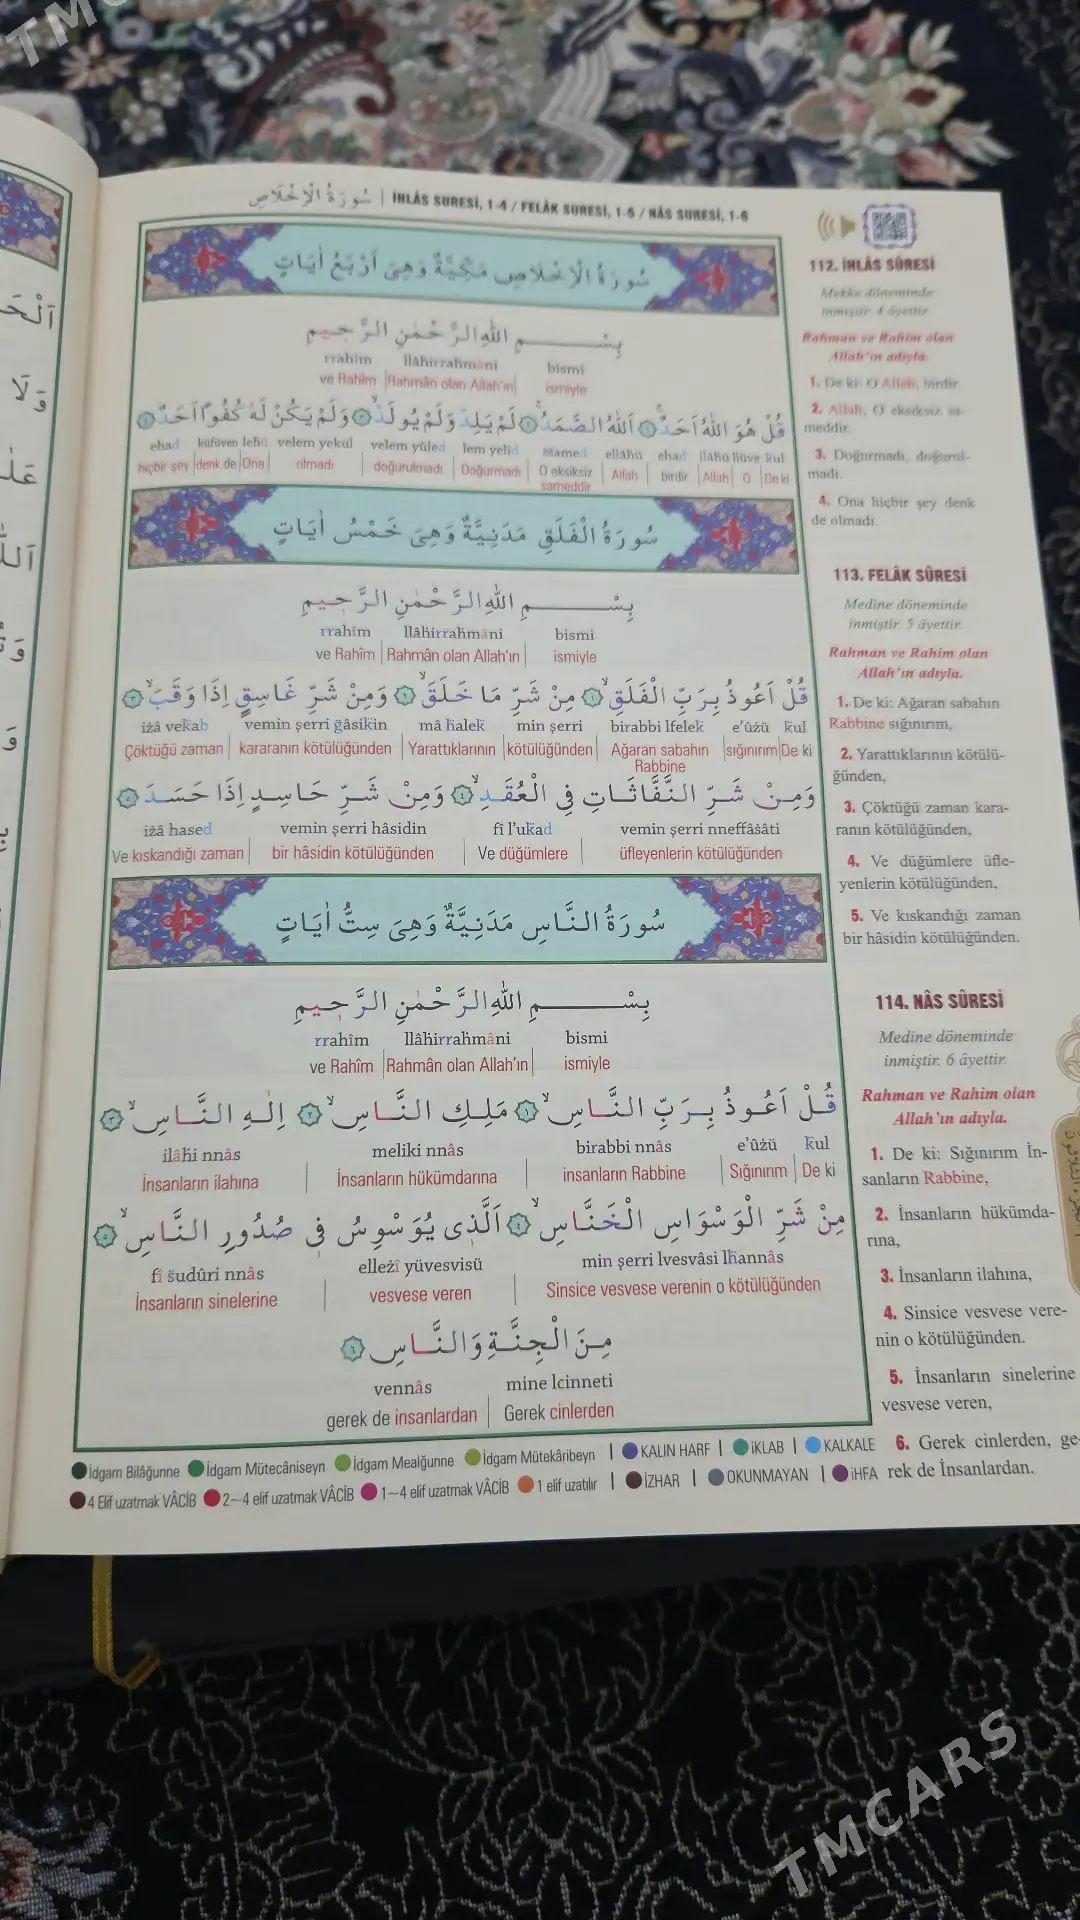 سُورَةُ الْاِخْلَاصِ | İHLÂS SURESİ, 1-4 / FELÂK SURESİ, 1-5 / NÂS SURESİ, 1-6
سُورَةُ الْاِخْلَاصِ مَكِّيَّةٌ وَهِيَ اَرْبَعُ اٰيَاتٍ
بِسْمِ اللّٰهِ الرَّحْمٰنِ الرَّحِيمِ
rrahîm llâhirrahmâni bismi
ve Rahîm | Rahmân olan Allah'ın | ismiyle
قُلْ هُوَ اللّٰهُ اَحَدٌ ١ اَللّٰهُ الصَّمَدُ ٢ لَمْ يَلِدْ وَلَمْ يُولَدْ ٣ وَلَمْ يَكُنْ لَهُ كُفُوًا اَحَدٌ ٤
ehad küfüven lehû velem yekül velem yûled lem yelid ssamed ellâhü ehad llâhü hüve kul
hiçbir şey | denk de | Ona | olmadı | doğurulmadı | Doğurmadı | O eksiksiz sameddir | Allah | birdir | Allah | O | De ki
سُورَةُ الْفَلَقِ مَدَنِيَّةٌ وَهِيَ خَمْسُ اٰيَاتٍ
بِسْمِ اللّٰهِ الرَّحْمٰنِ الرَّحِيمِ
rrahîm llâhirrahmâni bismi
ve Rahîm | Rahmân olan Allah'ın | ismiyle
قُلْ اَعُوذُ بِرَبِّ الْفَلَقِ ١ مِنْ شَرِّ مَا خَلَقَ ٢ وَمِنْ شَرِّ غَاسِقٍ اِذَا وَقَبَ ٣
iżâ vekab vemin şerri ğâsikin mâ halek min şerri birabbi lfelek e'ûżü kul
Çöktüğü zaman | kararanın kötülüğünden | Yarattıklarının | kötülüğünden | Ağaran sabahın Rabbine | sığınırım | De ki
وَمِنْ شَرِّ النَّفَّاثَاتِ فِي الْعُقَدِ ٤ وَمِنْ شَرِّ حَاسِدٍ اِذَا حَسَدَ ٥
iżâ hased vemin şerri hâsidin fî l'ukad vemin şerri nneffâsâti
Ve kıskandığı zaman | bir hâsidin kötülüğünden | Ve düğümlere | üfleyenlerin kötülüğünden
سُورَةُ النَّاسِ مَدَنِيَّةٌ وَهِيَ سِتُّ اٰيَاتٍ
بِسْمِ اللّٰهِ الرَّحْمٰنِ الرَّحِيمِ
rrahîm llâhirrahmâni bismi
ve Rahîm | Rahmân olan Allah'ın | ismiyle
قُلْ اَعُوذُ بِرَبِّ النَّاسِ ١ مَلِكِ النَّاسِ ٢ اِلٰهِ النَّاسِ ٣
ilâhi nnâs meliki nnâs birabbi nnâs e'ûżü kul
İnsanların ilahına | İnsanların hükümdarına | insanların Rabbine | Sığınırım | De ki
مِنْ شَرِّ الْوَسْوَاسِ الْخَنَّاسِ ٤ اَلَّذِي يُوَسْوِسُ فِي صُدُورِ النَّاسِ ٥
fî sudûri nnâs elleżî yüvesvisü min şerri lvesvâsi lhannâs
İnsanların sinelerine | vesvese veren | Sinsice vesvese verenin o kötülüğünden
مِنَ الْجِنَّةِ وَالنَّاسِ ٦
vennâs mine lcinneti
gerek de insanlardan | Gerek cinlerden
112. İHLÂS SÛRESİ
Mekke döneminde
inmiştir. 4 âyettir.
Rahman ve Rahim olan
Allah'ın adıyla.
1. De ki: O Allah, birdir.
2. Allah, O eksiksiz sa-
meddir.
3. Doğurmadı, doğurul-
madı.
4. Ona hiçbir şey denk
de olmadı.
113. FELÂK SÛRESİ
Medine döneminde
inmiştir. 5 âyettir.
Rahman ve Rahim olan
Allah'ın adıyla.
1. De ki: Ağaran sabahın
Rabbine sığınırım,
2. Yarattıklarının kötülü-
ğünden,
3. Çöktüğü zaman kara-
ranın kötülüğünden,
4. Ve düğümlere üfle-
yenlerin kötülüğünden,
5. Ve kıskandığı zaman
bir hâsidin kötülüğünden.
114. NÂS SÛRESİ
Medine döneminde
inmiştir. 6 âyettir.
Rahman ve Rahim olan
Allah'ın adıyla.
1. De ki: Sığınırım İn-
sanların Rabbine,
2. İnsanların hükümda-
rına,
3. İnsanların ilahına,
4. Sinsice vesvese vere-
nin o kötülüğünden.
5. İnsanların sinelerine
vesvese veren,
6. Gerek cinlerden, ge-
rek de İnsanlardan.
İdgam Bilâğunne İdgam Mütecâniseyn İdgam Mealğunne İdgam Mütekâribeyn | KALIN HARF | İKLAB | KALKALE
4 Elif uzatmak VÂCİB 2~4 elif uzatmak VÂCİB 1~4 elif uzatmak VÂCİB 1 elif uzatılır | İZHAR | OKUNMAYAN | İHFA
TMCARS